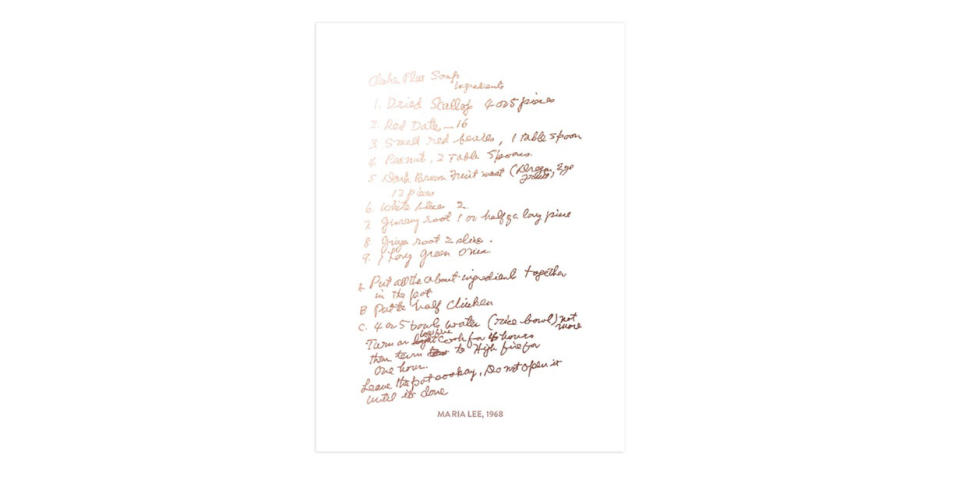 Soup
Ingredients
1. Dried Scallop 4 or 5 pieces
2. Red Date _ 16
3 Small red beans, 1 table spoon
4 Peanut, 2 Table Spoons.
5 Dark Brown Fruit meat (Dragon Eye
12 pieces
6. White 2
7. root 1 or half of a long piece
8 root 2 slice.
9. 1 Long green onion
A Put all the about ingredient together
in the pot
B Put the half Chicken
C. 4 or 5 bowls water (rice bowl) not
more
Turn on Cook for hours
then turn to High fire for
One hour.
Leave the pot cooking, Do not open it
until its done
MARIA LEE, 1968